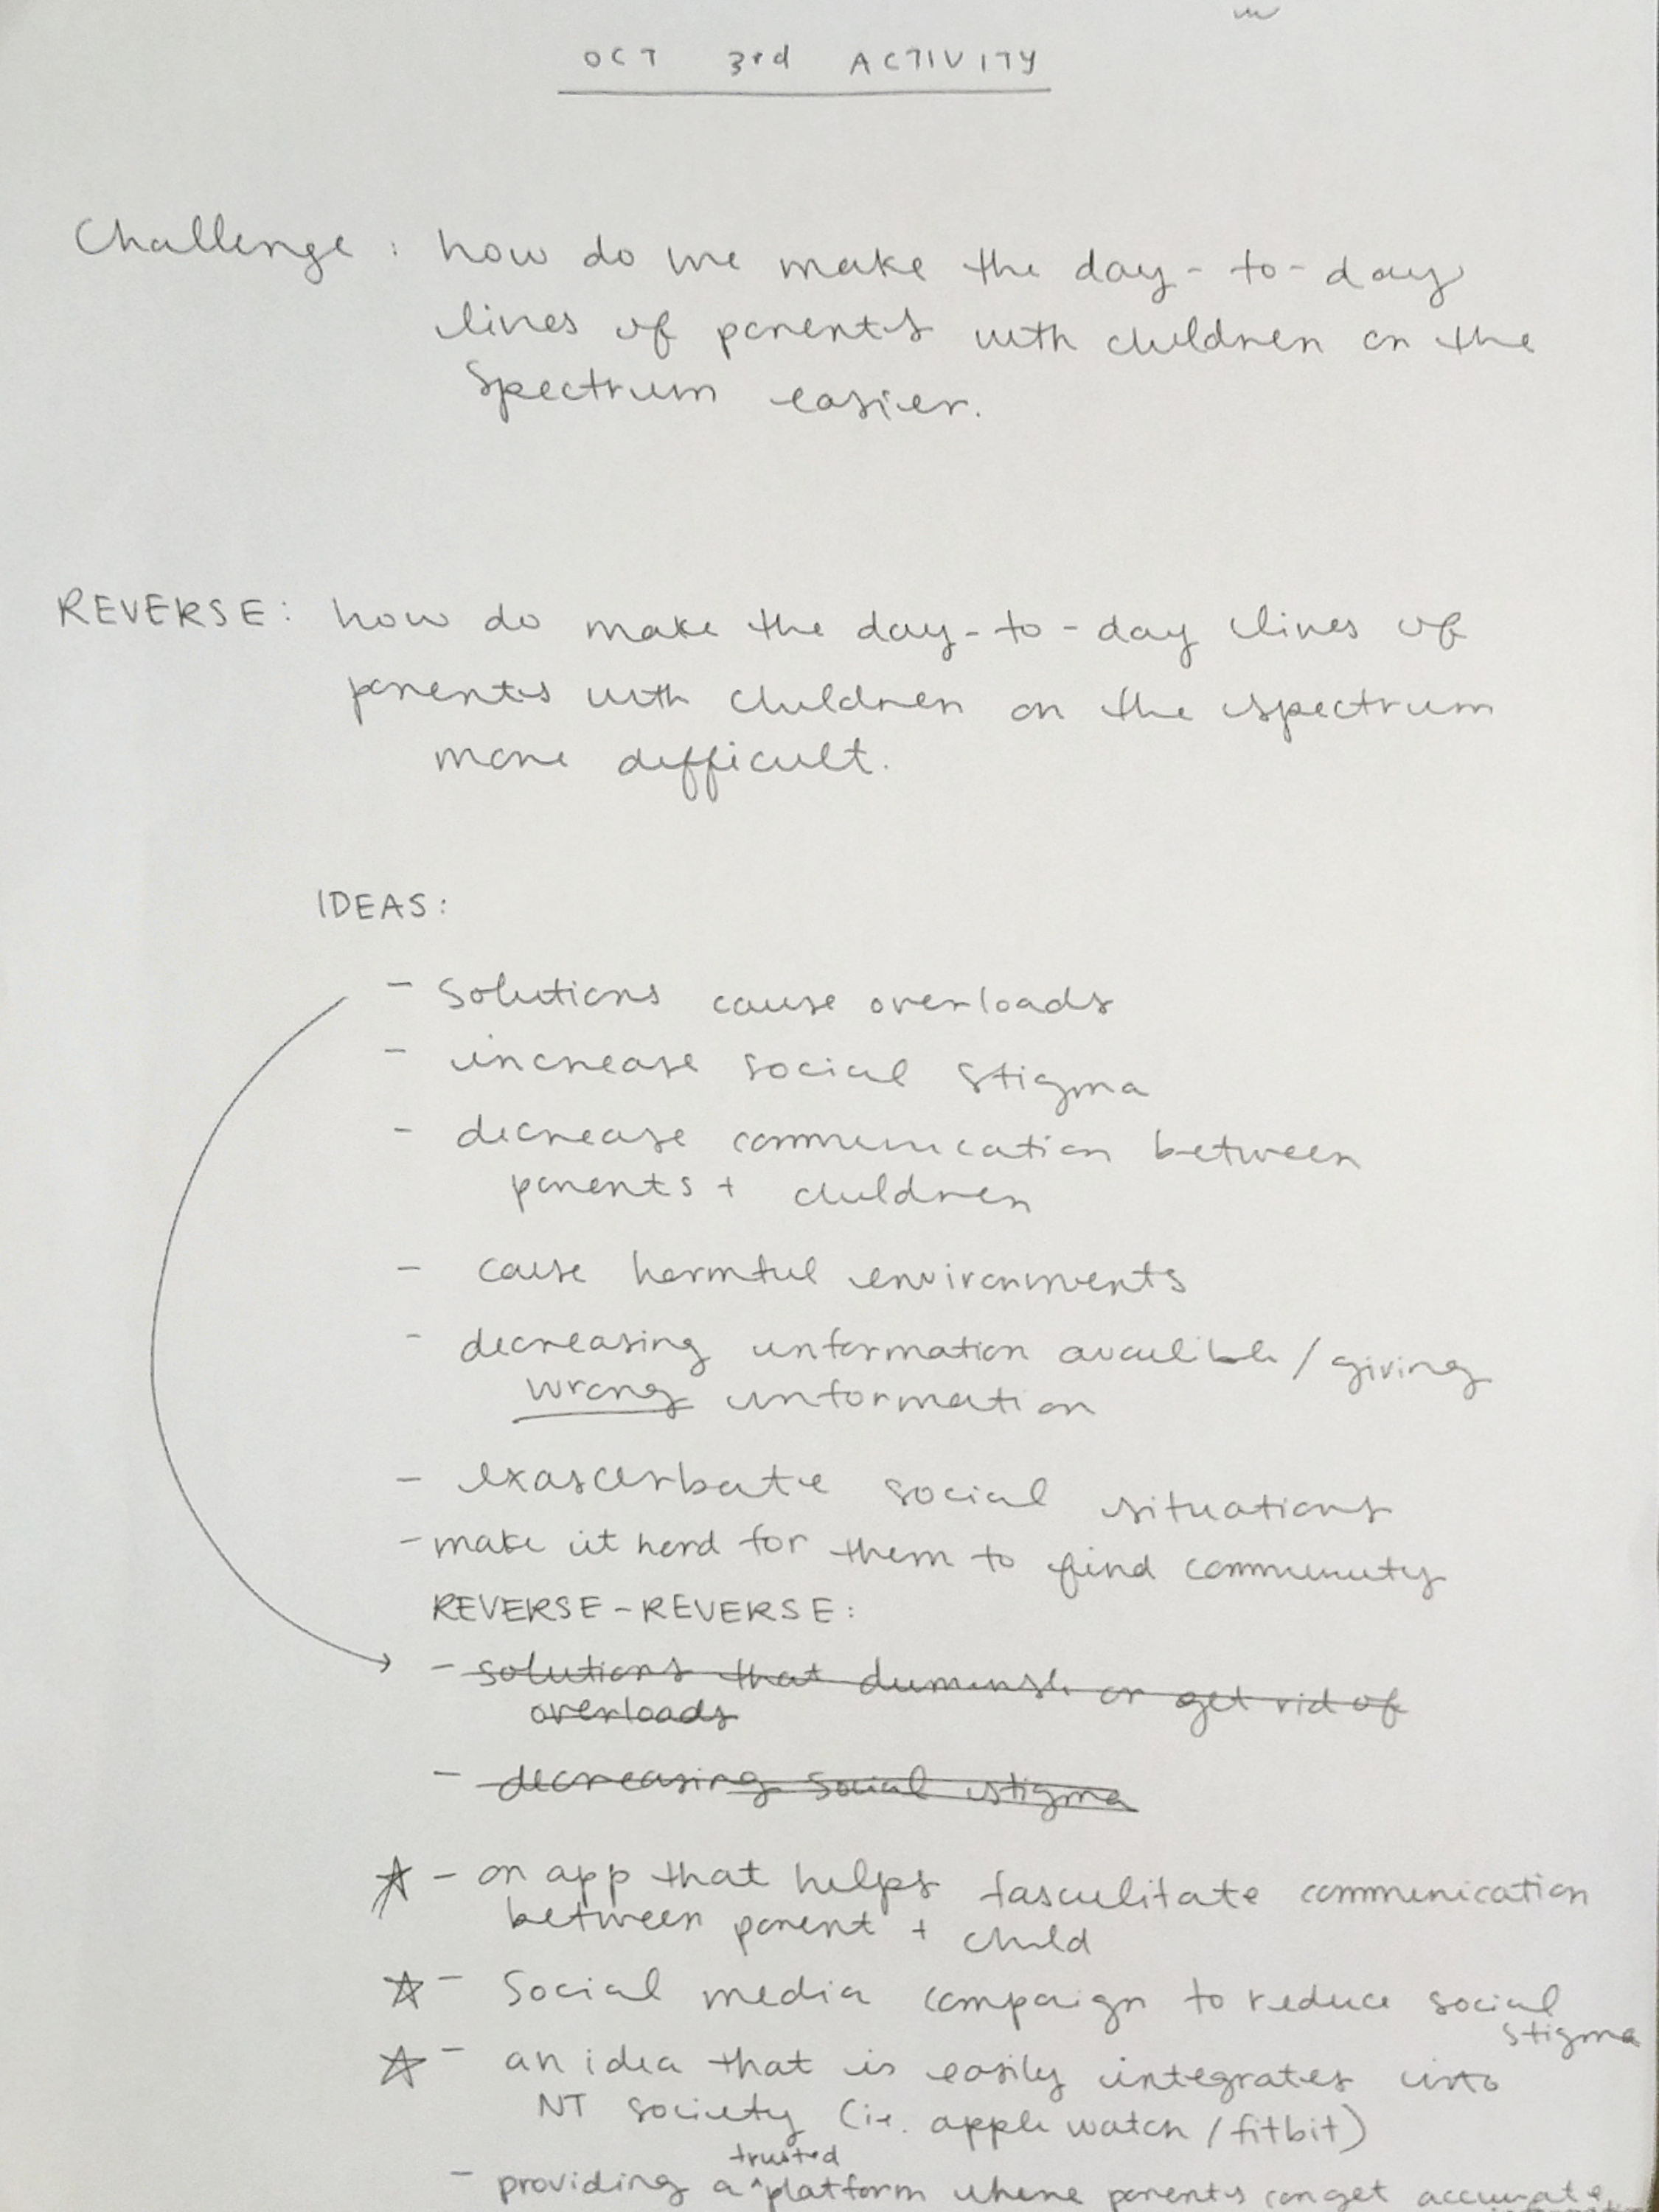 OCT 3rd ACTIVITY
Challenge: how do we make the day-to-day
lives of parents with children on the
spectrum easier.
REVERSE: how do make the day-to-day lives of
parents with children on the spectrum
more difficult.
IDEAS:
- solutions cause overloads
- increase social stigma
- decrease communication between
parents + children
- cause harmful environments
- decreasing information availible / giving
wrong information
- exascerbate social situations
- make it hard for them to find community
REVERSE-REVERSE:
- solutions that diminish or get rid of
overloads
- decreasing social stigma
☆ - an app that helps fasculitate communication
between parent + child
☆ - Social media campaign to reduce social
stigma
☆ - an idea that is easily integrates into
NT society (ie. apple watch / fitbit)
- providing a ^trusted platform where parents can get accurate